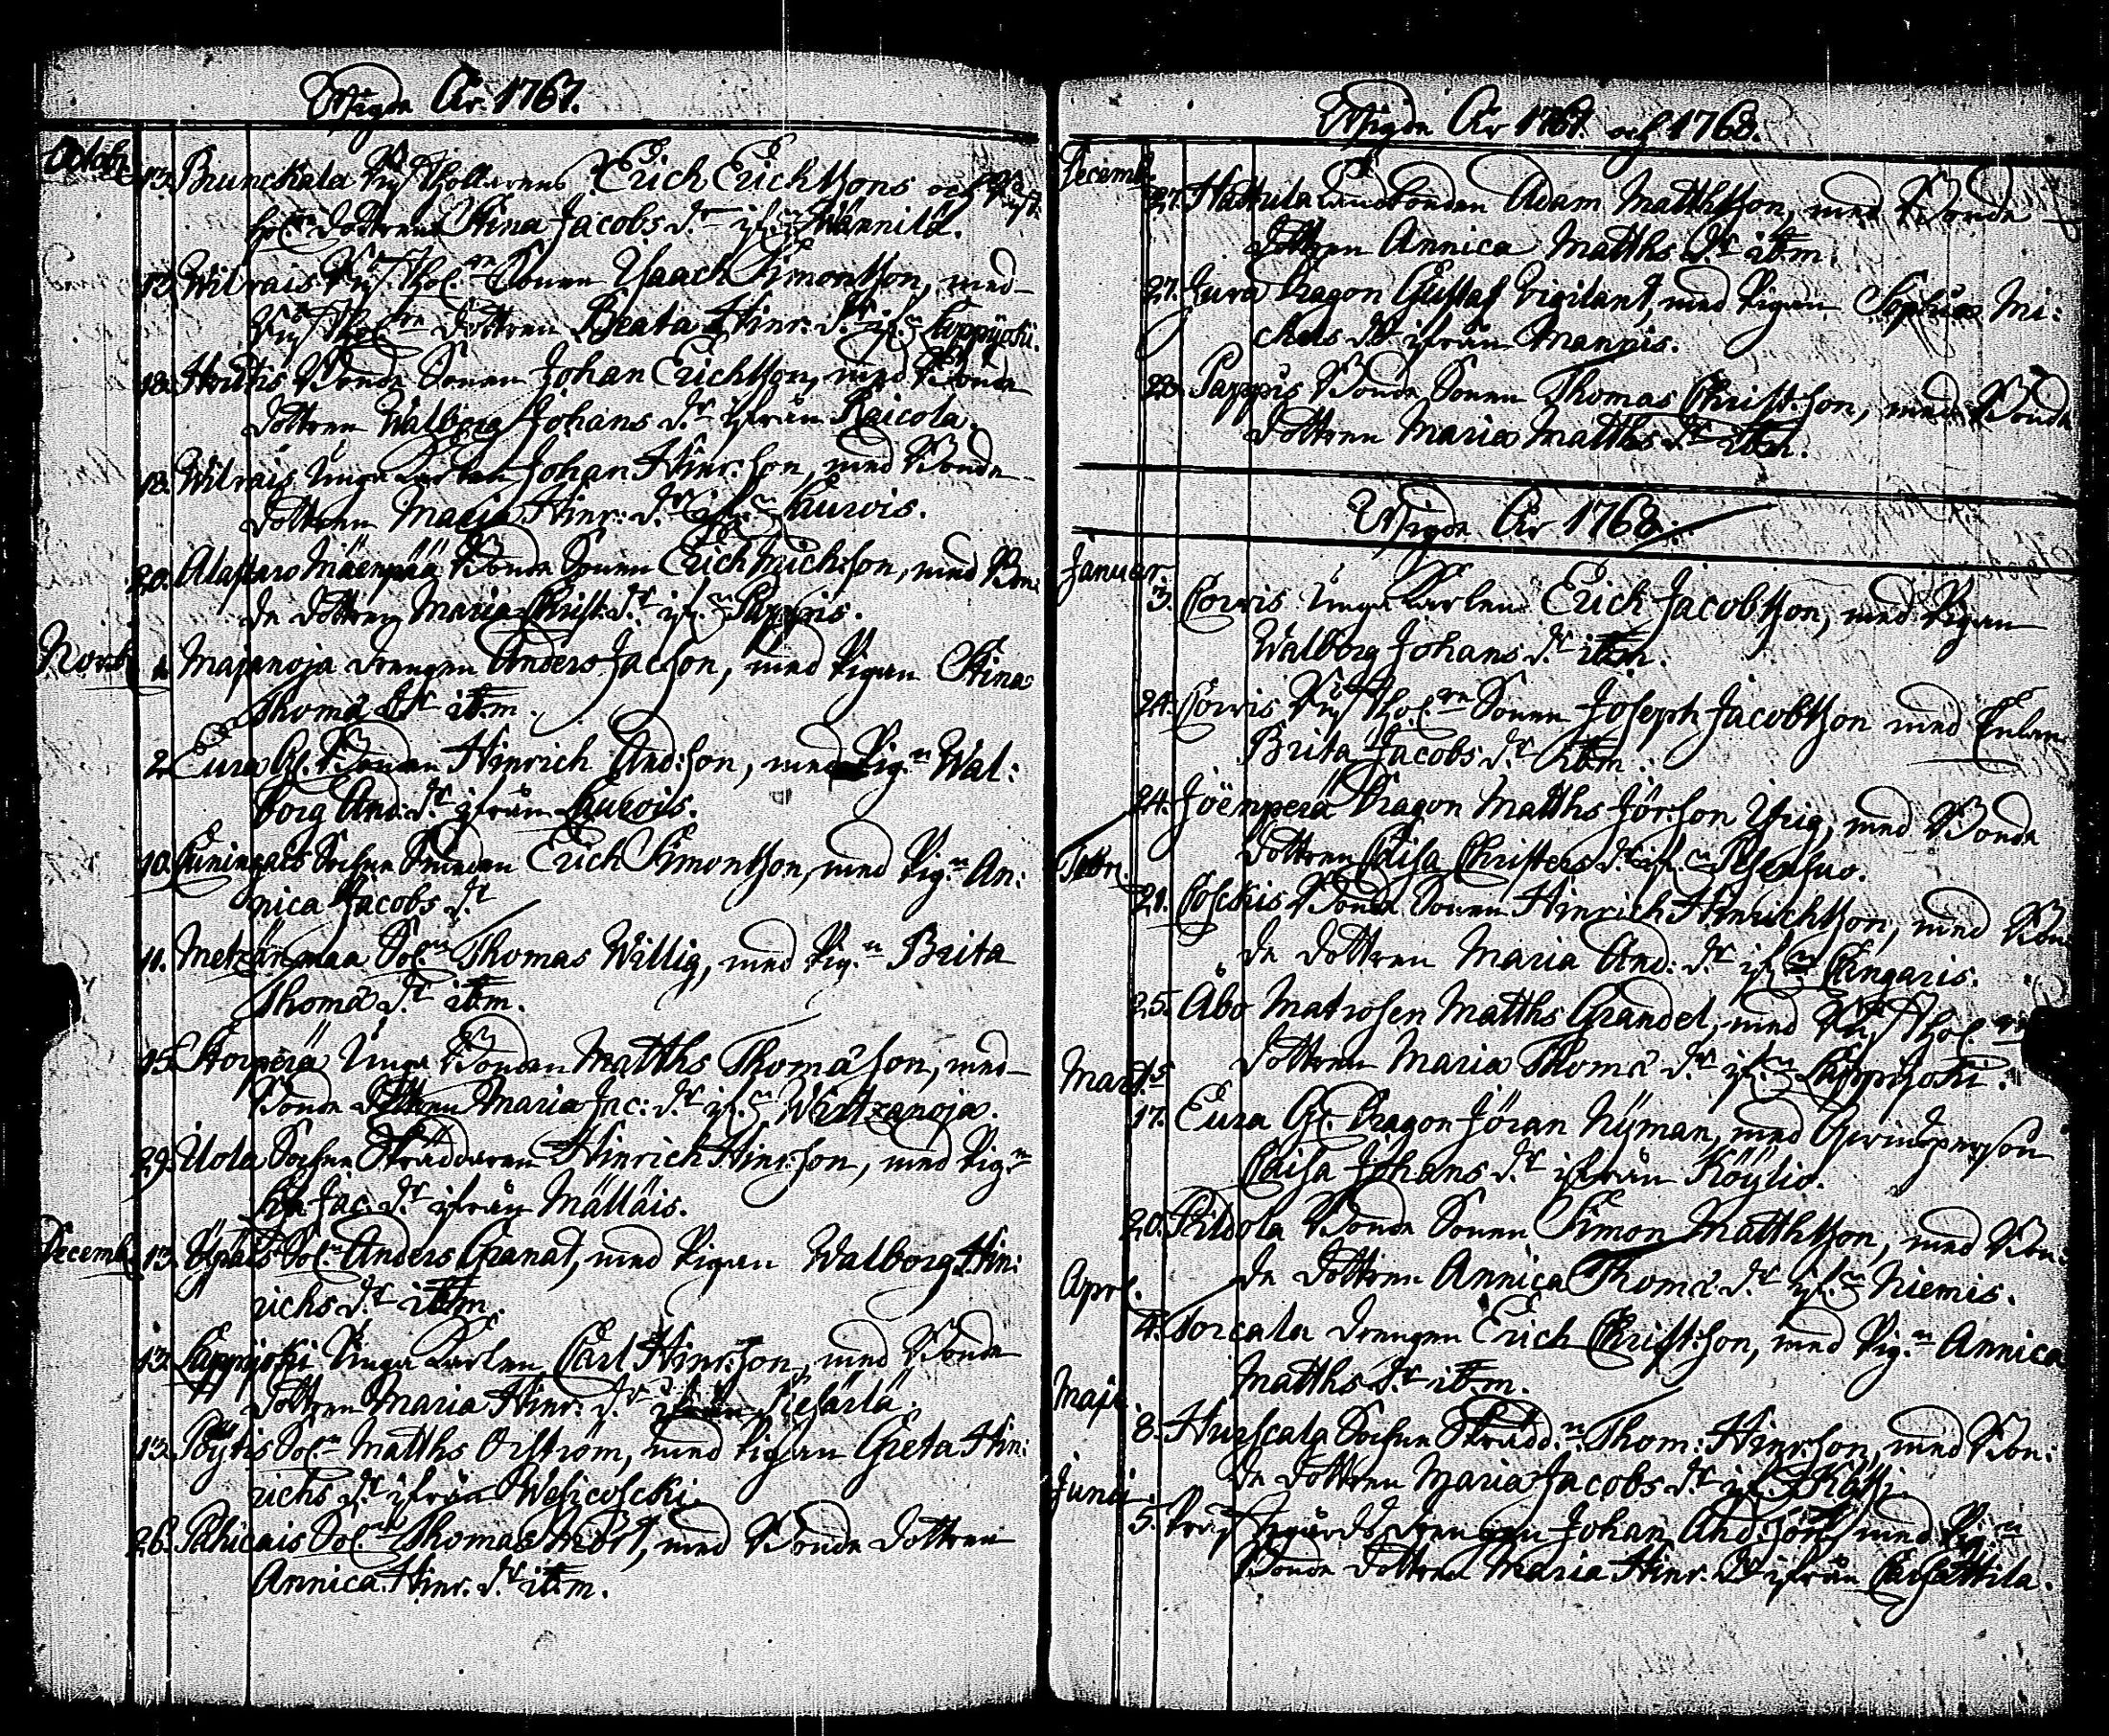 Wigde År 1767.
Octobr
13. Brunckala Erich Erichssons och
dottren Stina Jacobs dr Wännilä.
13. Wilvais Sonen Isaach Simonsson, med
dottren Beata Hinr. dr Lappijoki.
18. Houtis Bonde Sonen Johan Erichsson, med Bonde
dottren Walborg Johans dr ifrån Raicola.
18. Wilvais Unga Karlen Johan Hinr:son, med Bonde
dottren Maria Hinr: dr if:n Laurois.
20. Alastaro Mäenpää Bonde Sonen Erich Mich:son, med Bon:
de dottren Maria Christ: dr if:n Pappis.
Novb
1. Majanoja drengen Anders Jacson, med Pigan Stina
Thomæ dr ib:m.
2. Eura By. Bonden Hinrich And:son, med Pig:n Wal:
borg And: dr ifrån Laurois.
10. Sochne Smeden Erich Simonsson, med Pig:n An:
nica Jacobs dr
11. Metzänmaa Sol:n Thomas Willig, med Pig:n Brita
Thomæ dr ib:m.
15. Storperä Unga Bonden Matths Thomæson, med
Bonde dottren Maria Jac: dr if:n Wirtzanoja.
29. Uola Sochne Skräddaren Hinrich Hinr:son, med Pig:n
Jac: dr ifrån Mälläis.
Decemb
13. Sol:n Anders Granat, med Pigan Walborg Hin:
richs dr ib:m.
13. Lappijoki Unga Karlen Carl Hinr:son, med Bonde
dottren Maria Hinr: dr ifrån
13. Pöytis Sol:n Matths Orström, med Pigan Greta Hin:
richs dr ifrån Wesicoscki.
26. Pahicais Sol:n Thomas Mört, med Bonde dottren
Annica Hinr. dr ib:m.
Wigde År 1767. och 1768.
Decemb.
27. Hattula Landbonden Adam Matthsson, med Bonde
dottren Annica Matths dr ib:m.
27. Jura Dragon Gustaf Vigilant, med Pigan Sophia Mi:
chels dr ifrån Mannis.
28. Pappis Bonde Sonen Thomas Christ:son, med Bonde
dottren Maria Matths dr ib:m.
Wigde År 1768.
Januar.
3. Corvis Unga Karlen Erich Jacobsson, med Pigan
Walborg Johans dr ib:m.
24. Corvis Sonen Joseph Jacobsson med Enkan
Brita Jacobs dr ib:m.
24. Jöenperä Dragon Matths Jör:son Yrig, med Bonde
dottren Caisa Christers dr if:n
Febr.
21. Coskis Bonde Sonen Hinrich Hinrichsson, med Bon
de dottren Maria And: dr if:n Cangaris.
25. Åbo Matrosen Matths Grandel, med
dottren Maria Thomæ dr if:n Lappijoki.
Mart.
17. Eura By. Dragon Jöran Nyman, med Qwinsperson
Caisa Johans dr ifrån Köylio.
20. Bonde Sonen Simon Matthsson, med Bon:
de dottren Annica Thomæ dr if:n Niemis.
Aprl.
4. Sorcala drengen Erich Christ:son, med Pig:n Annica
Matths dr ib:m.
Maji
8. Hurscala Sochne Skrädd:n Thom: Hinr:son, med Bon:
de dottren Maria Jacobs dr if:n
Junii
5. drengen Johan And:son, med Pig:n
Bonde dottren Maria Hinr. dr ifrån Carhattila.